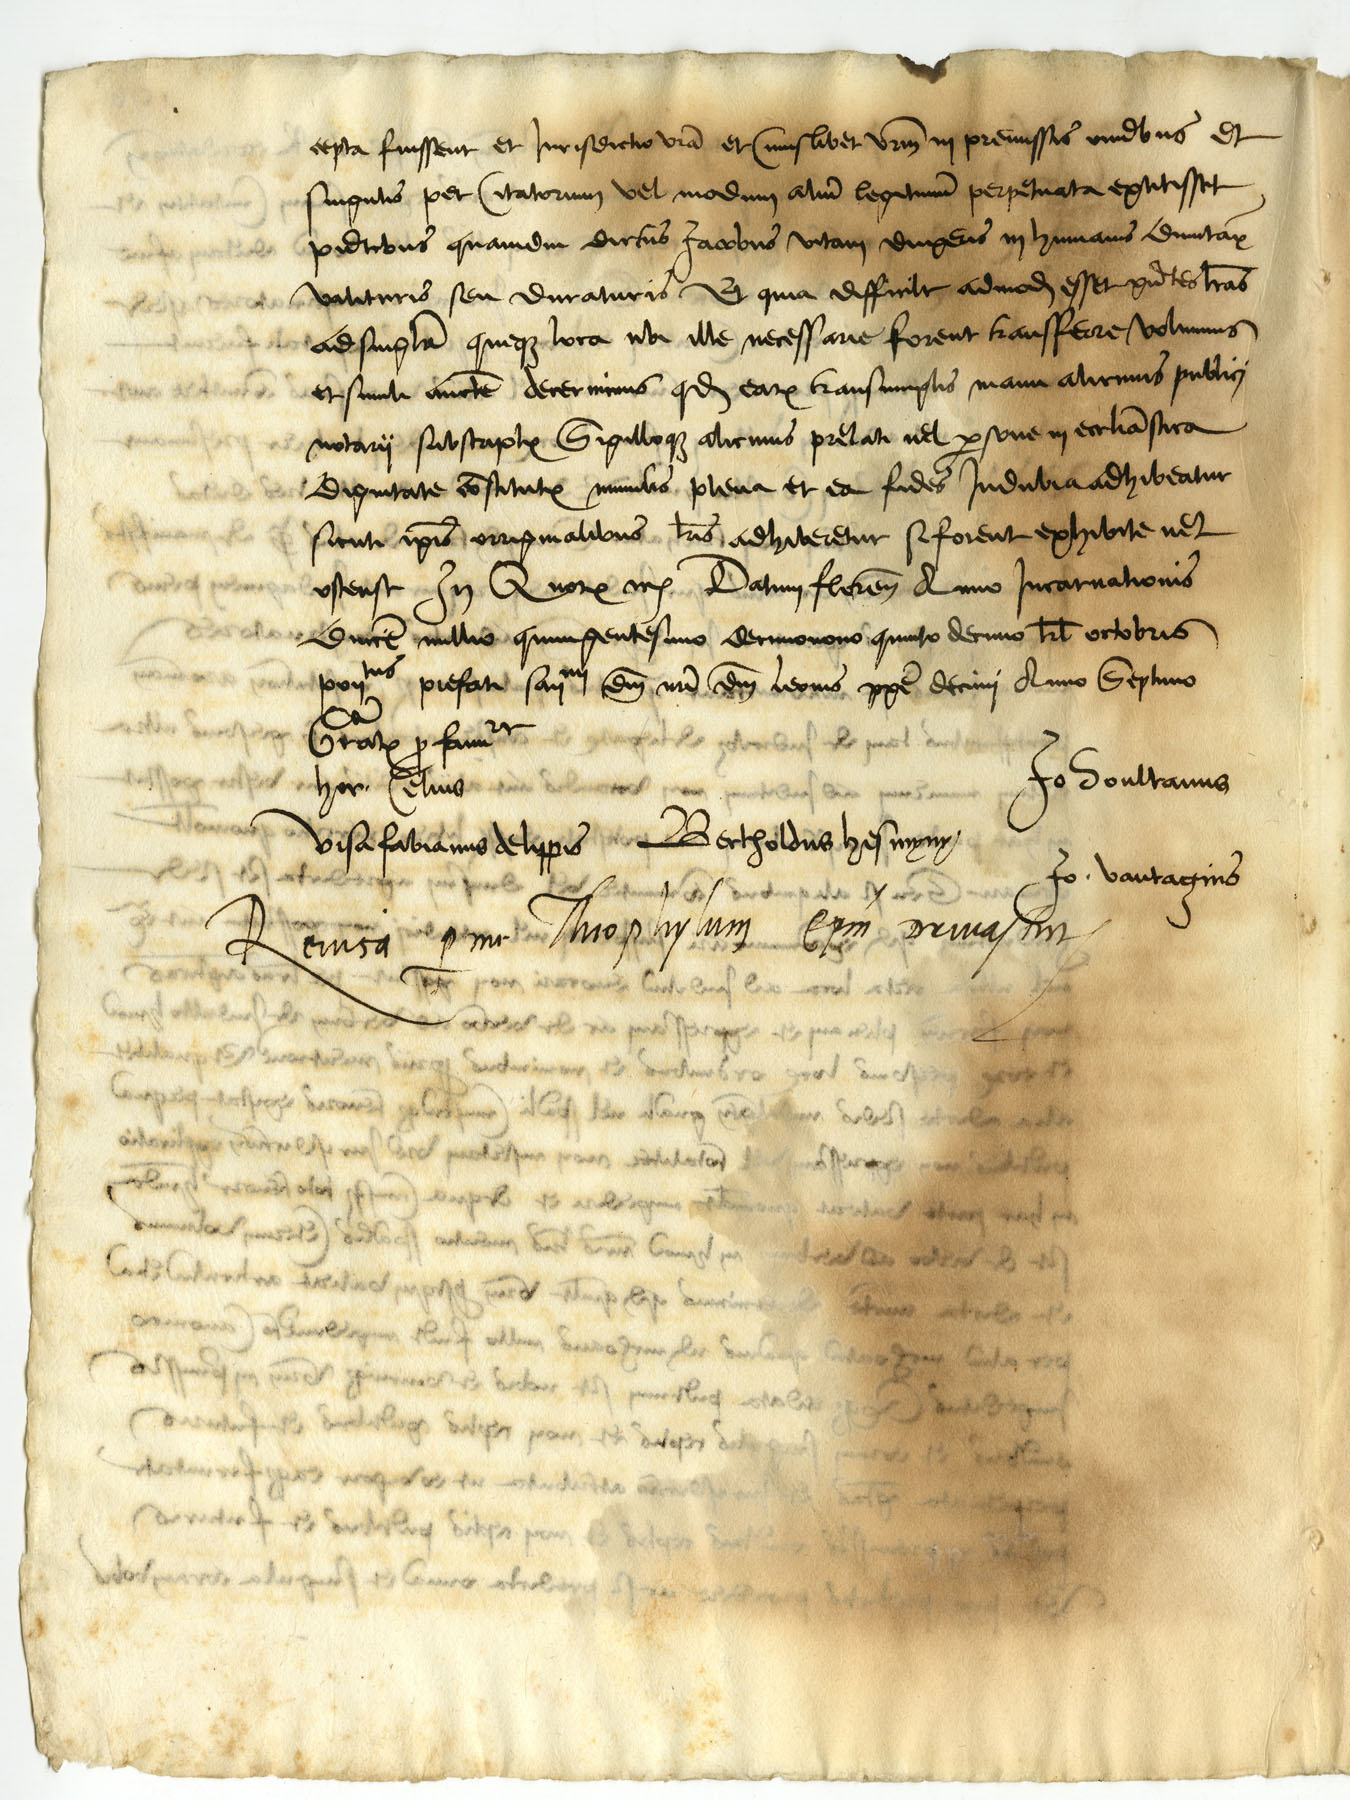 cepta fuissent et Jurisdictio vr̃a et cuiuslibet vr̃m in premissis omĩbus Et
singulis per Citatorium vel modum aliũ legitimũ perpetuata extitisset
pñtibus quamdiu dictus Jacobus vitam duxerit in humanis duntax̃
valituris seu duraturis Et quia difficile admod esset pñtes lr̃as
ad singula queq loca ubi ille necessarie forent transferre volumus
et simili aucte decernimus qd eax̃ transumptis manu alicuius publici
notarii subscriptx̃ Sigilloq alicuius prelati vel psone in ecclĩastica
Dignitate constitutx̃ munitis plena et ea fides Indubia adhibeatur
sicuti ip̃is originalibus lr̃is adhiberetur si forent exhibite vel
ostense In Quorx̃ Datum floreñ Anno Incarnationis
Dñice millio quingentesimo decimonono quinto decimo kl̃ octobris
pont^tus prefati sañ^mi dñi nr̃i dñi leonis ppe decimi Anno Septimo
Gratx̃ p famur
her. Celius
Jo Soultanus
Visa fabianus de lippis Bertholdus
Jo. vantagius
Reuisa p me Theophylum Epm̃ driuasten